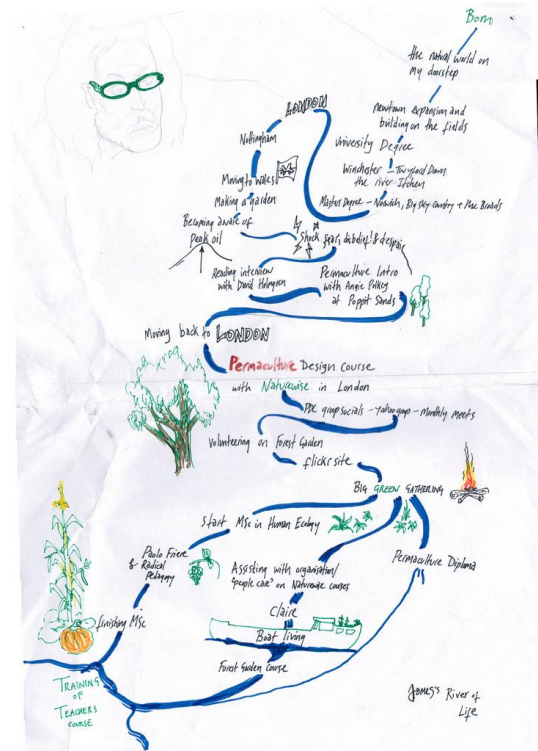 Born
the natural world on
my doorstep
newtown expansion and
building on the fields
University Degree
Winchester – Twyford Down
the river Itchen
Master Degree – Norwich, Big sky country + the Broads
LONDON
Nottingham
Moving to Wales
Making a garden
Becoming aware of
Peak oil
Shock, fear, disbelief & despair
Reading interview
with David Holmgren
Permaculture Intro
with Angie Polkey
at Poppit Sands
Moving back to LONDON
Permaculture Design course
with Naturewise in London
PDC group socials – Yahoo group – Monthly Meets
Volunteering on Forest Garden
flickr site
BIG GREEN GATHERING
Start MSc in Human Ecology
Paolo Friere
& Radical
Pedagogy
Assisting with organisation/
'people care' on Naturewise courses
Permaculture Diploma
Claire
Boat living
finishing MSc
Forest Garden Course
TRAINING
OF
TEACHERS
COURSE
James's River of
Life